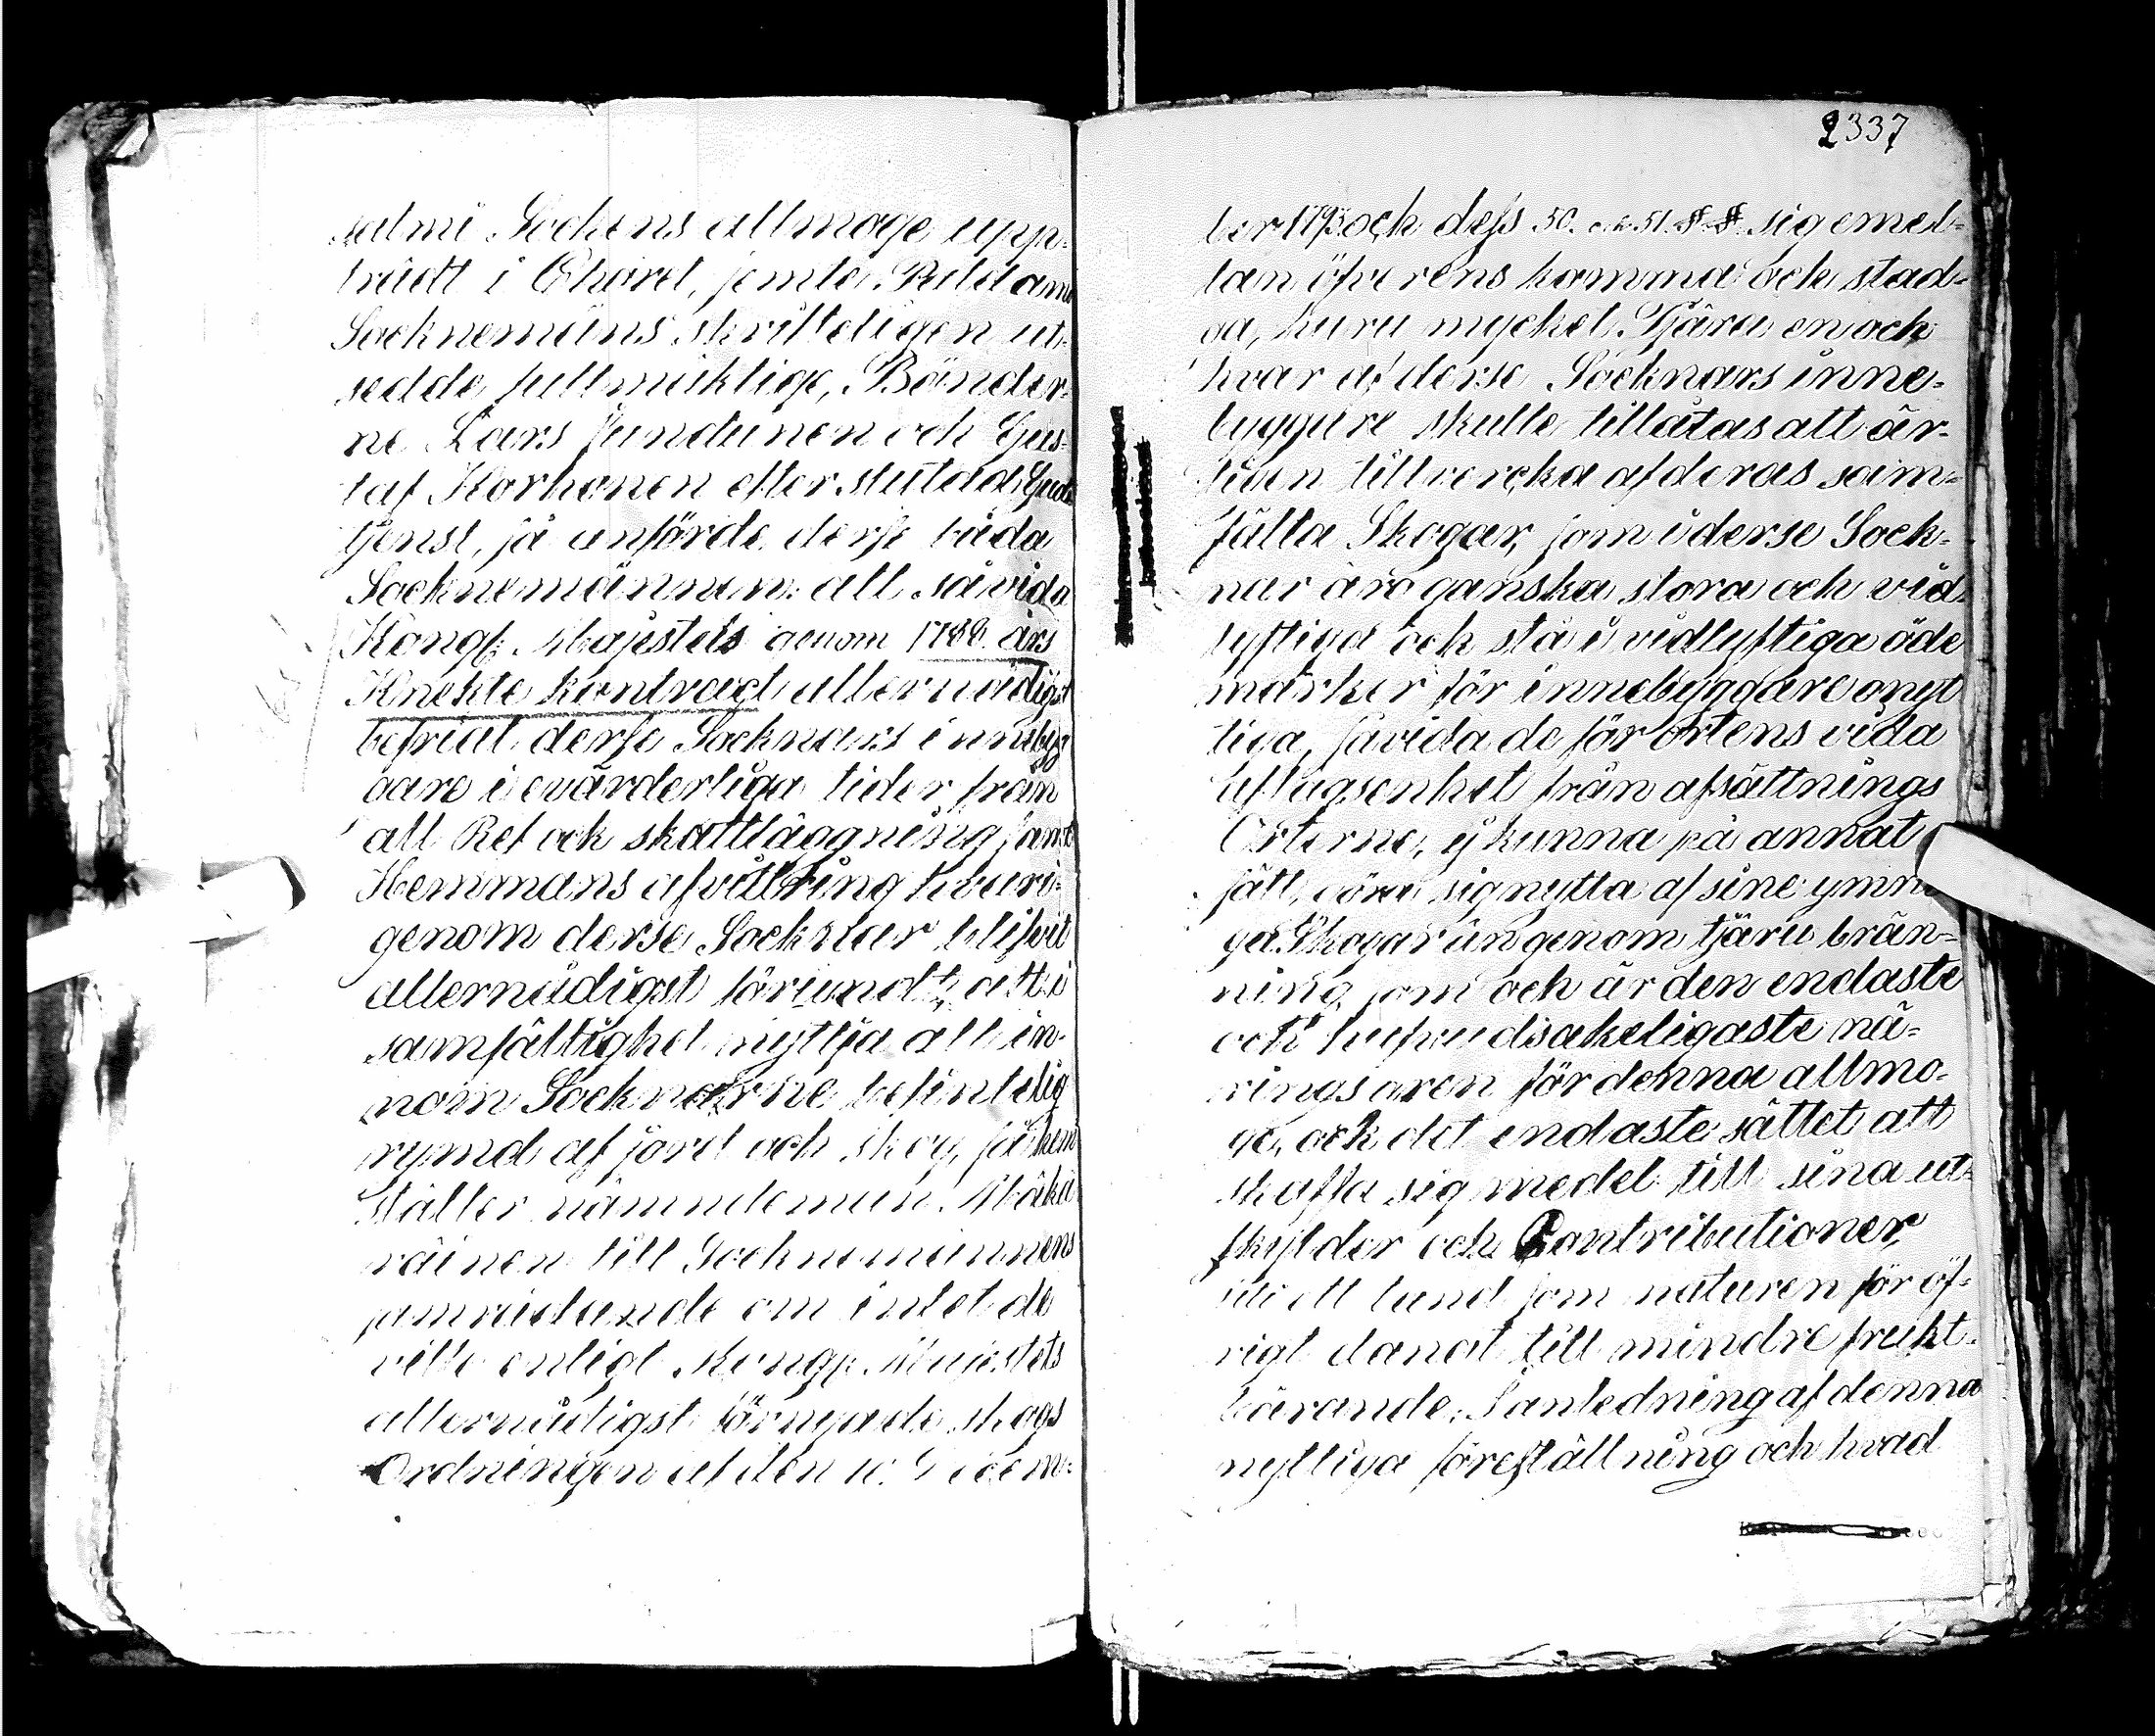 salmi Sockens allmoge upp-
trädt i Choret, jemte Paldamo
Socknemäns skrifteligen ut-
sedde fullmäktige, Bönder-
ne Lars Junttunen och Gus-
taf Korhonen efter slutad Guds
tjenst, så anförde desse båda
Socknemännen: att såvida
Kongl. Majestets genom 1788 års
Knekte kontract allernådigst
befriat desse Socknars innebyg
gare i evärderliga tider från
all Ref och skattläggning samt
Hemmans afvittring hvari-
genom desse Socknar blifvit
allernådigst förundt, att i
samfällighet nyttja all in-
nom Socknarne befintelig
rymd af jord och skog, så hem
ställer nämndeman Mäkä
räinen till Sockn männens
samrådande om intet de
ville enligt Kongl. Majestets
allernådigst förnyade skogs
Ordningen af den 10. Decem-
2337
ber 1793. och dess 50. och 51. §.§. sig emel-
lan öfverens komma och stad-
ga, huru mycket Tjära en och
hvar af desse Socknars inne-
byggare skulle tillåtas att år-
ligen tillvercka af deras sam-
fälta Skogar, som i desse Sock-
nar äro ganska stora och vid-
lyftiga och stå i vidlyftiga öde
marker för innebyggare onyt
tiga, såvida de för ortens vida
aflägsenhet från afsättnings
Orterne, ej kunna på annat
sätt göra sig nytta af sine ymni
ga Skogar än genom tjäru brän-
ning som och är den endaste
och hufvudsakeligaste nä-
ringsgren för denna allmo-
ge, och det endaste sättet att
skaffa sig medel till sina ut-
skylder och Contributioner
uti ett land som naturen för öf-
rigt danat till mindre frukt-
bärande; I anledning af denna
nyttiga föreställning och hvad